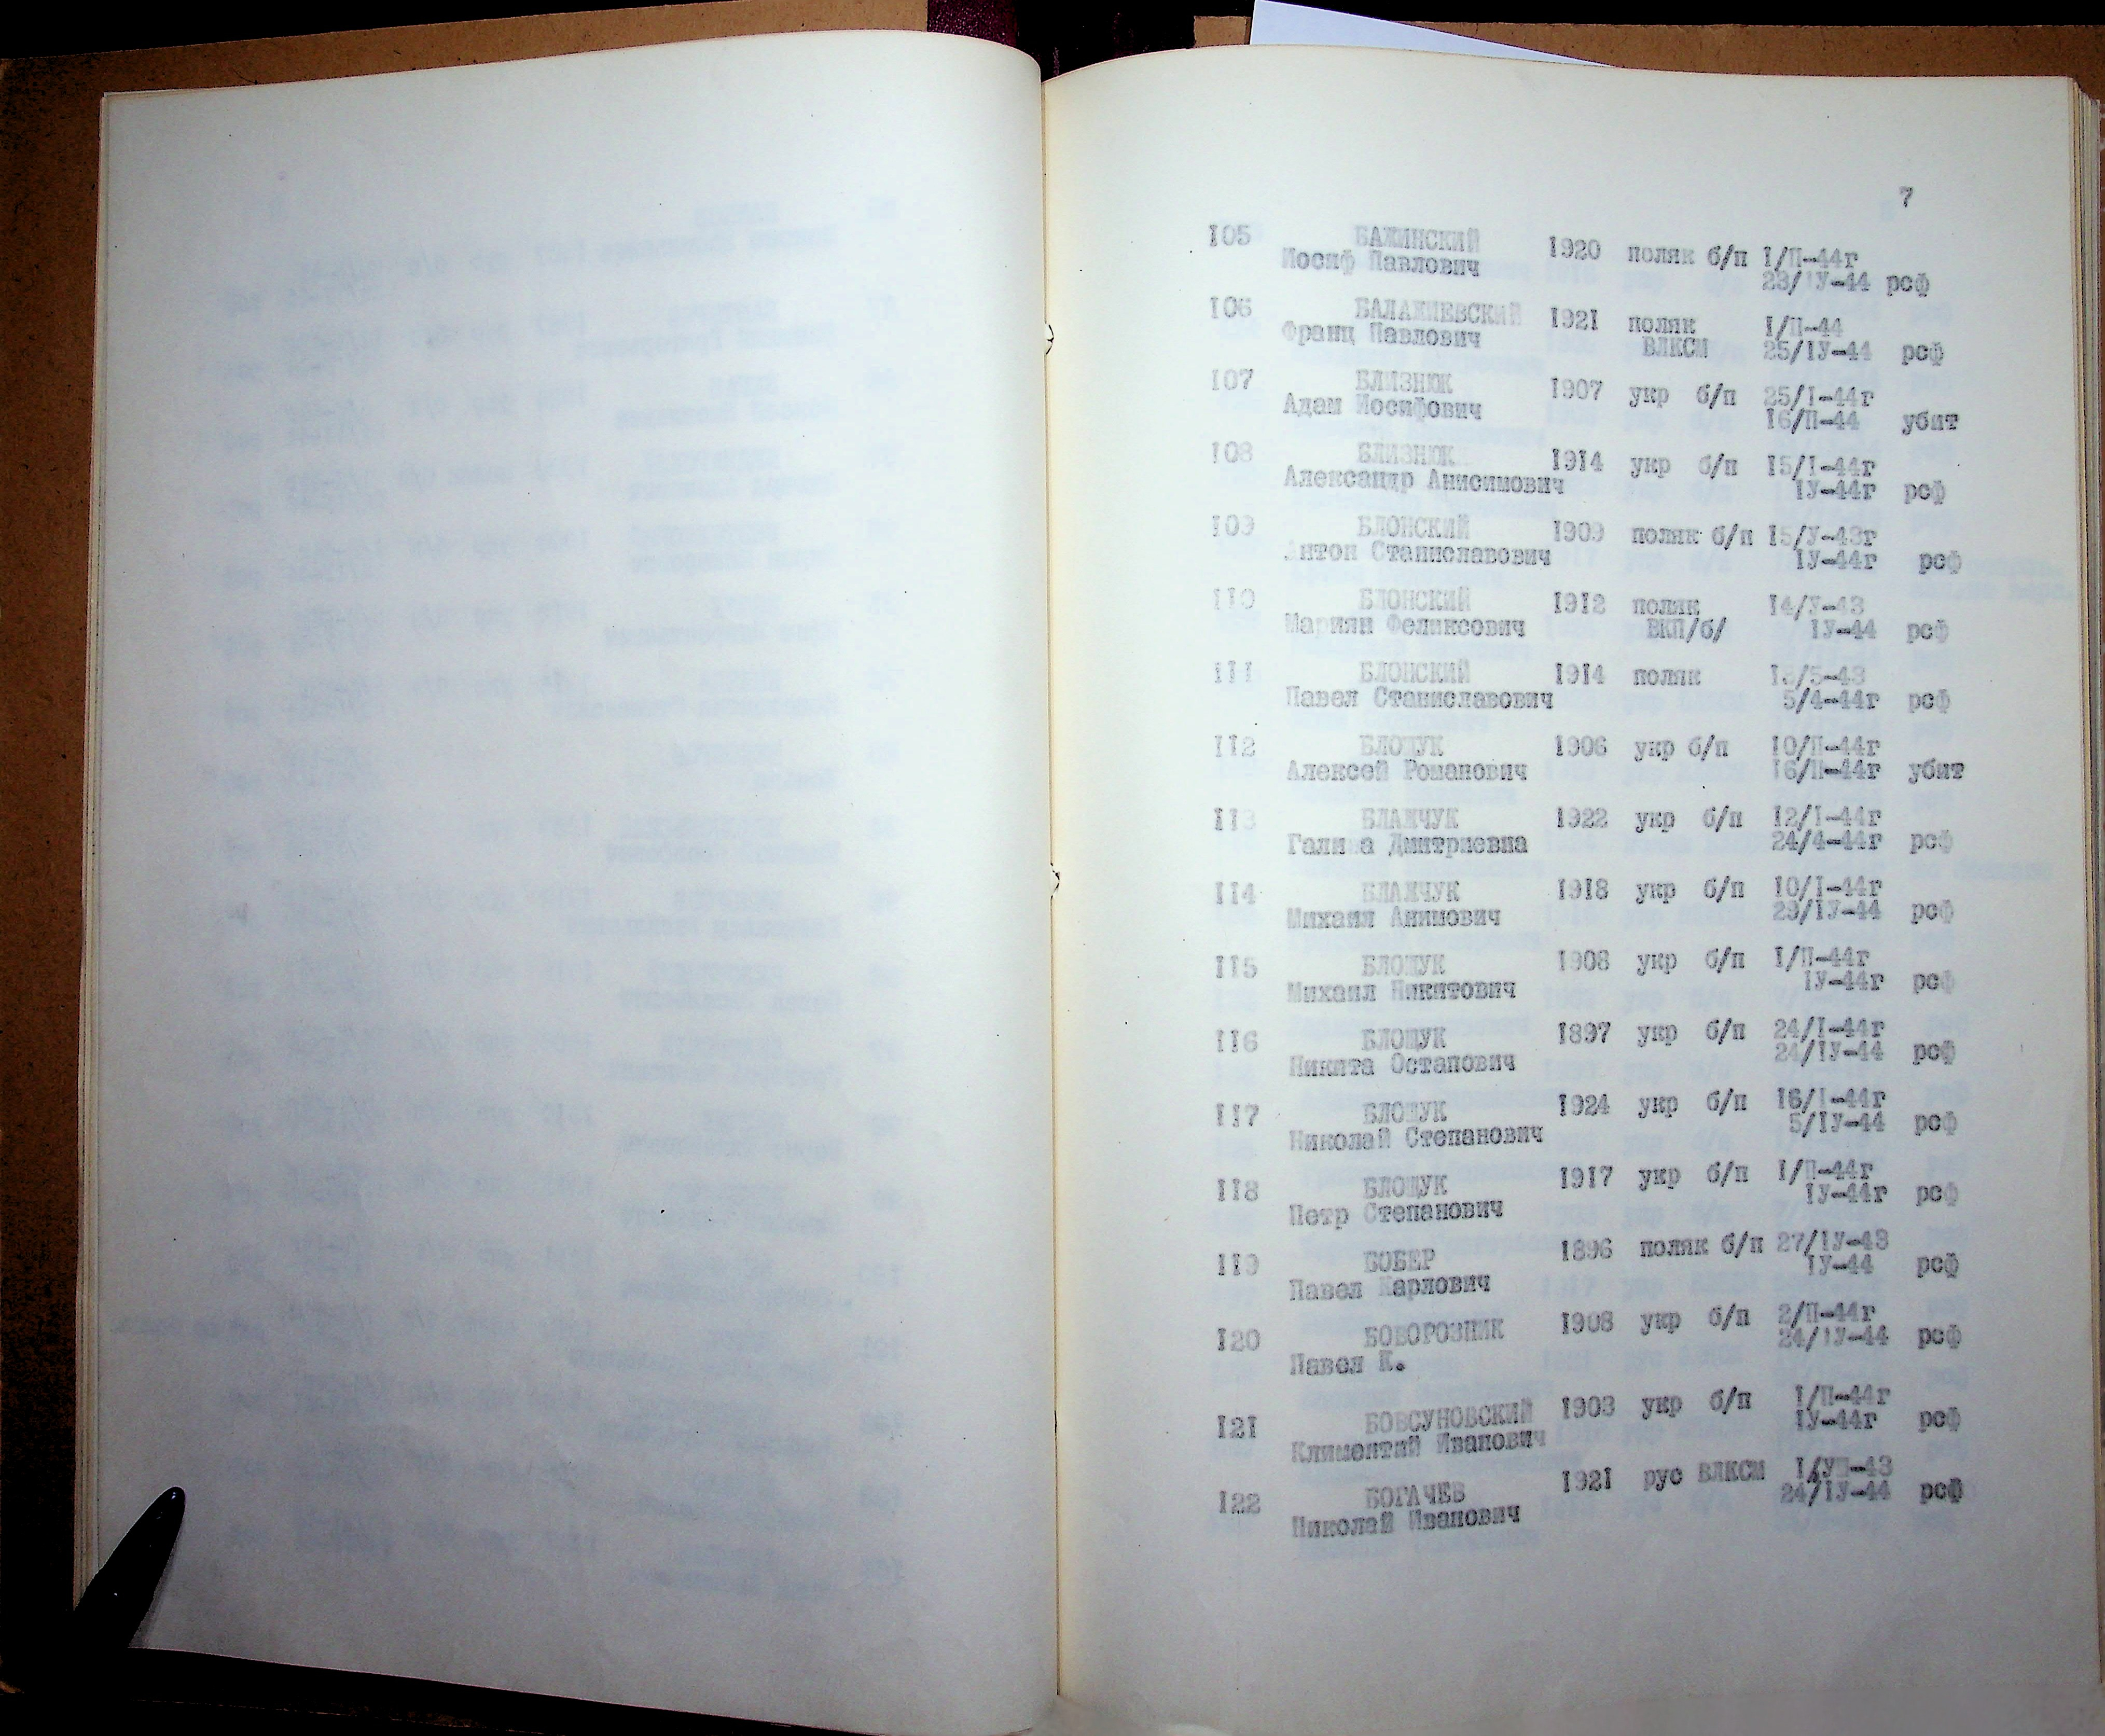 7
105 БАЖИНСКИЙ 1920 поляк б/п 1/П-44г
Иосиф Павлович 23/1У-44 рсф
106 БАЛАКИЕВСКИЙ 1921 поляк 1/П-44
Франц Павлович ВЛКСМ 25/1У-44 рсф
107 БЛИЗНЮК 1907 укр б/п 25/1-44г
Адам Иосифович 16/П-44 убит
108 БЛИЗНЮК 1914 укр б/п 15/1-44г
Александр Анисимович 1У-44г рсф
109 БЛОНСКИЙ 1909 поляк б/п 15/У-43г
Антон Станиславович 1У-44г рсф
110 БЛОНСКИЙ 1912 поляк 14/У-43
Мариян Феликсович ВКП/б/ 1У-44 рсф
111 БЛОНСКИЙ 1914 поляк 13/5-43
Павел Станиславович 5/4-44г рсф
112 БЛОЩУК 1906 укр б/п 10/П-44г
Алексей Романович 16/П-44г убит
113 БЛАЖЧУК 1922 укр б/п 12/1-44г
Галина Дмитриевна 24/4-44г рсф
114 БЛАЖЧУК 1918 укр б/п 10/1-44г
Михаил Анимович 29/1У-44 рсф
115 БЛОЩУК 1908 укр б/п 1/П-44г
Михаил Никитович 1У-44г рсф
116 БЛОЩУК 1897 укр б/п 24/1-44г
Никита Остапович 24/1У-44 рсф
117 БЛОЩУК 1924 укр б/п 16/1-44г
Николай Степанович 5/1У-44 рсф
118 БЛОЩУК 1917 укр б/п 1/П-44г
Петр Степанович 1У-44г рсф
119 БОБЕР 1896 поляк б/п 27/1У-43
Павел Карлович 1У-44 рсф
120 БОВОРОЗНИК 1908 укр б/п 2/П-44г
Павел К. 24/1У-44 рсф
121 БОВСУНОВСКИЙ 1903 укр б/п 1/П-44г
Климентий Иванович 1У-44г рсф
122 БОГАЧЕВ 1921 рус ВЛКСМ 1/УП-43
Николай Иванович 24/1У-44 рсф